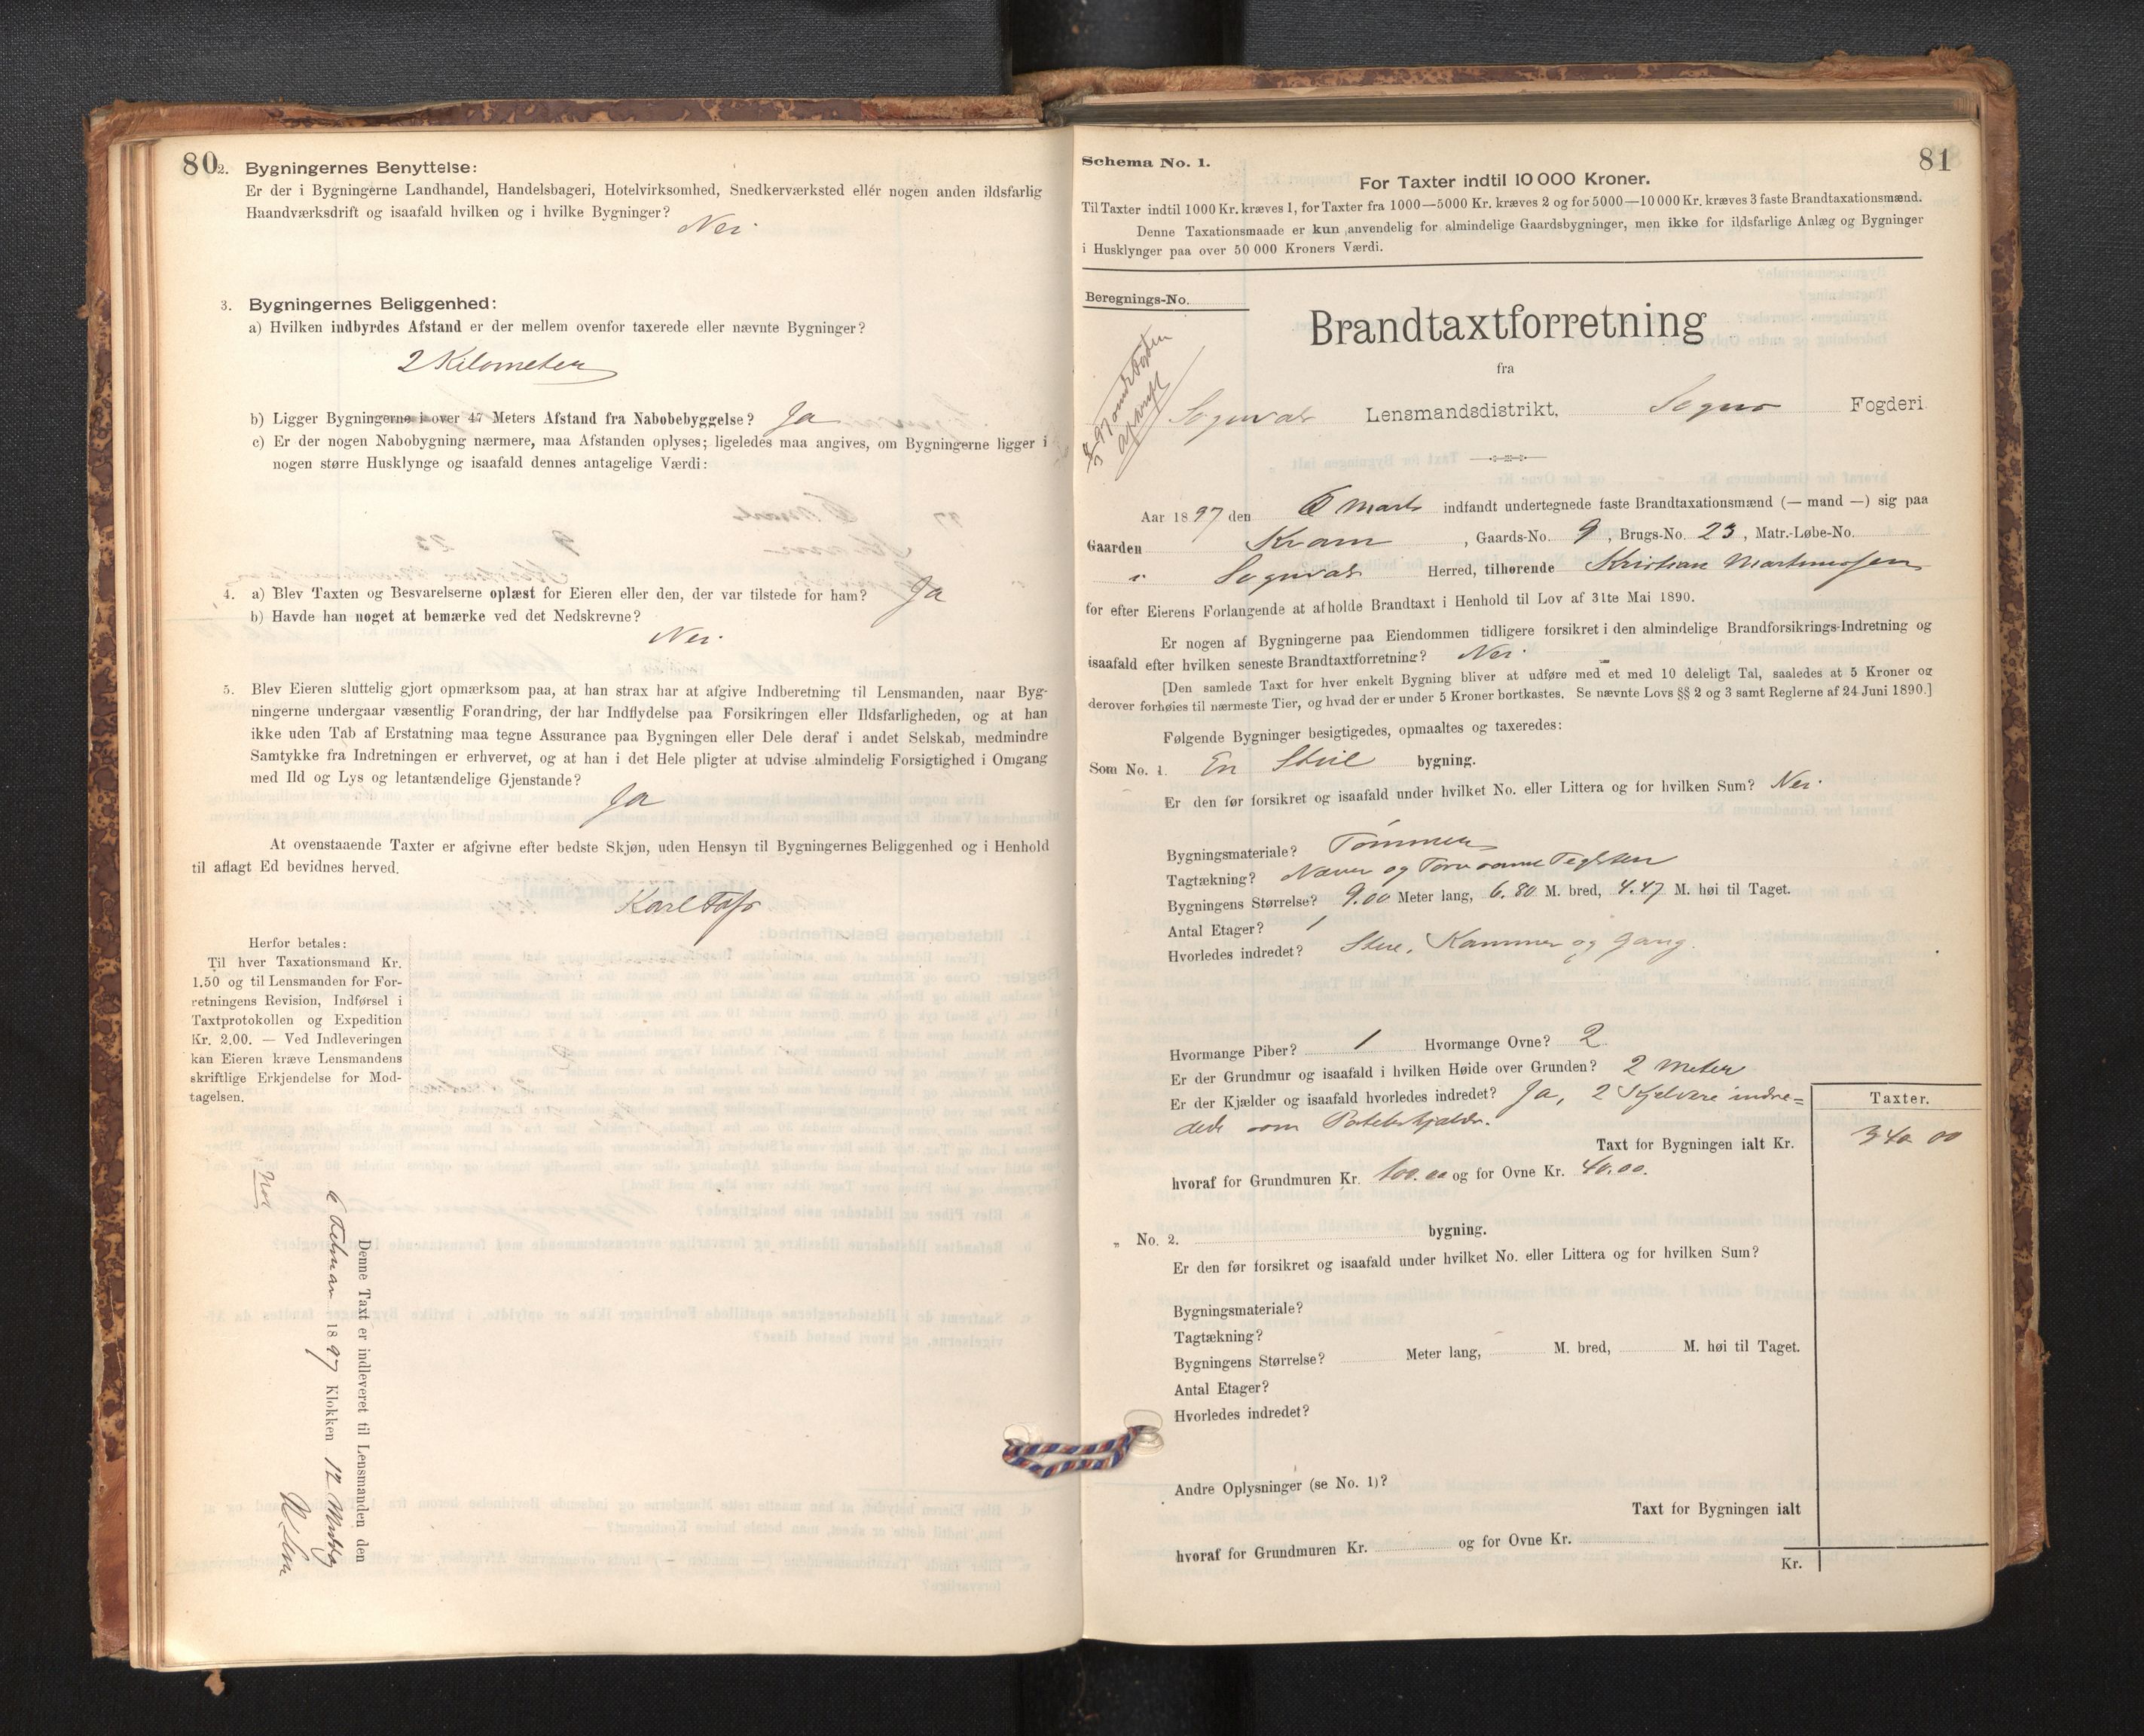 80
2. Bygningernes Benyttelse:
Er der i Bygningerne Landhandel, Handelsbageri, Hotelvirksomhed, Snedkerværksted ellér nogen anden ildsfarlig
Haandværksdrift og isaafald hvilken og i hvilke Bygninger?
Nei.
3. Bygningernes Beliggenhed:
a) Hvilken indbyrdes Afstand er der mellem ovenfor taxerede eller nævnte Bygninger?
2 Kilometer
b) Ligger Bygningerne i over 47 Meters Afstand fra Nabobebyggelse? Ja
c) Er der nogen Nabobygning nærmere, maa Afstanden oplyses; ligeledes maa angives, om Bygningerne ligger i
nogen større Husklynge og isaafald dennes antagelige Værdi:
4. a) Blev Taxten og Besvarelserne oplæst for Eieren eller den, der var tilstede for ham? Ja
b) Havde han noget at bemærke ved det Nedskrevne?
Nei.
5. Blev Eieren sluttelig gjort opmærksom paa, at han strax har at afgive Indberetning til Lensmanden, naar Byg-
ningerne undergaar væsentlig Forandring, der har Indflydelse paa Forsikringen eller Ildsfarligheden, og at han
ikke uden Tab af Erstatning maa tegne Assurance paa Bygningen eller Dele deraf i andet Selskab, medmindre
Samtykke fra Indretningen er erhvervet, og at han i det Hele pligter at udvise almindelig Forsigtighed i Omgang
med Ild og Lys og letantændelige Gjenstande?
Ja
At ovenstaaende Taxter er afgivne efter bedste Skjøn, uden Hensyn til Bygningernes Beliggenhed og i Henhold
til aflagt Ed bevidnes herved.
Karl
Herfor betales:
Til hver Taxationsmand Kr.
1.50 og til Lensmanden for For-
retningens Revision, Indførsel i
Taxtprotokollen og Expedition
Kr. 2.00. — Ved Indleveringen
kan Eieren kræve Lensmandens
skriftlige Erkjendelse for Mod-
tagelsen.
Denne Taxt er indleveret til Lensmanden den
6 Februar 1897 Klokken 12 Middag
81
Schema No. 1.
For Taxter indtil 10 000 Kroner.
Til Taxter indtil 1000 Kr. kræves 1, for Taxter fra 1000—5000 Kr. kræves 2 og for 5000—10 000 Kr. kræves 3 faste Brandtaxationsmænd.
Denne Taxationsmaade er kun anvendelig for almindelige Gaardsbygninger, men ikke for ildsfarlige Anlæg og Bygninger
i Husklynger paa over 50 000 Kroners Værdi.
Beregnings-No.
Brandtaxtforretning
fra
Sogndal Lensmandsdistrikt, Sogns Fogderi
Aar 1897 den 6 Marts indfandt undertegnede faste Brandtaxationsmænd (— mand —) sig paa
Gaarden Kvam, Gaards-No. 9, Brugs-No. 23, Matr.-Løbe-No.
i Sogndal Herred, tilhørende Kristian Martinussen
for efter Eierens Forlangende at afholde Brandtaxt i Henhold til Lov af 31te Mai 1890.
Er nogen af Bygningerne paa Eiendommen tidligere forsikret i den almindelige Brandforsikrings-Indretning og
isaafald efter hvilken seneste Brandtaxtforretning? Nei.
[Den samlede Taxt for hver enkelt Bygning bliver at udføre med et med 10 deleligt Tal, saaledes at 5 Kroner og
derover forhøies til nærmeste Tier, og hvad der er under 5 Kroner bortkastes. Se nævnte Lovs §§ 2 og 3 samt Reglerne af 24 Juni 1890.]
Følgende Bygninger besigtigedes, opmaaltes og taxeredes:
Som No. 1. En Stue bygning.
Er den før forsikret og isaafald under hvilket No. eller Littera og for hvilken Sum? Nei.
Bygningsmateriale? Tømmer
Tagtækning? Næver og Torv samt Teglsten
Bygningens Størrelse? 9.00 Meter lang, 6.80 M. bred, 4.47 M. høi til Taget.
Antal Etager? 1
Hvorledes indredet? Stue, Kammer og Gang.
Hvormange Piber? 1 Hvormange Ovne? 2
Er der Grundmur og isaafald i hvilken Høide over Grunden? 2 Meter
Er der Kjælder og isaafald hvorledes indredet? Ja, 2 Kjelvere indre=
dede som Poteteskjælder.
Taxter.
Taxt for Bygningen ialt Kr. 340 00
hvoraf for Grundmuren Kr. 100.00 og for Ovne Kr. 40.00.
„ No. 2. bygning.
Er den før forsikret og isaafald under hvilket No. eller Littera og for hvilken Sum?
Bygningsmateriale?
Tagtækning?
Bygningens Størrelse? Meter lang, M. bred, M. høi til Taget.
Antal Etager?
Hvorledes indredet?
Andre Oplysninger (se No. 1)?
Taxt for Bygningen ialt
hvoraf for Grundmuren Kr. og for Ovne Kr.
Kr.